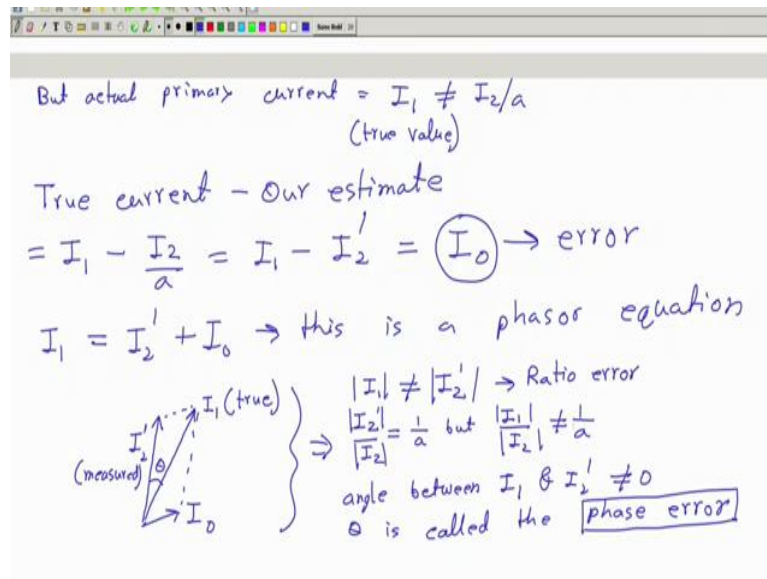 But actual primary current = I₁ ≠ I₂/a
(true value)
True current – Our estimate
= I₁ − I₂/a = I₁ − I₂' = I₀ → error
I₁ = I₂' + I₀ → this is a phasor equation
I₁ (true)
I₂'
(measured)
θ
I₀
⇒
|I₁| ≠ |I₂'| → Ratio error
|I₂'|/|I₂| = 1/a but |I₁|/|I₂| ≠ 1/a
angle between I₁ & I₂' ≠ 0
θ is called the phase error